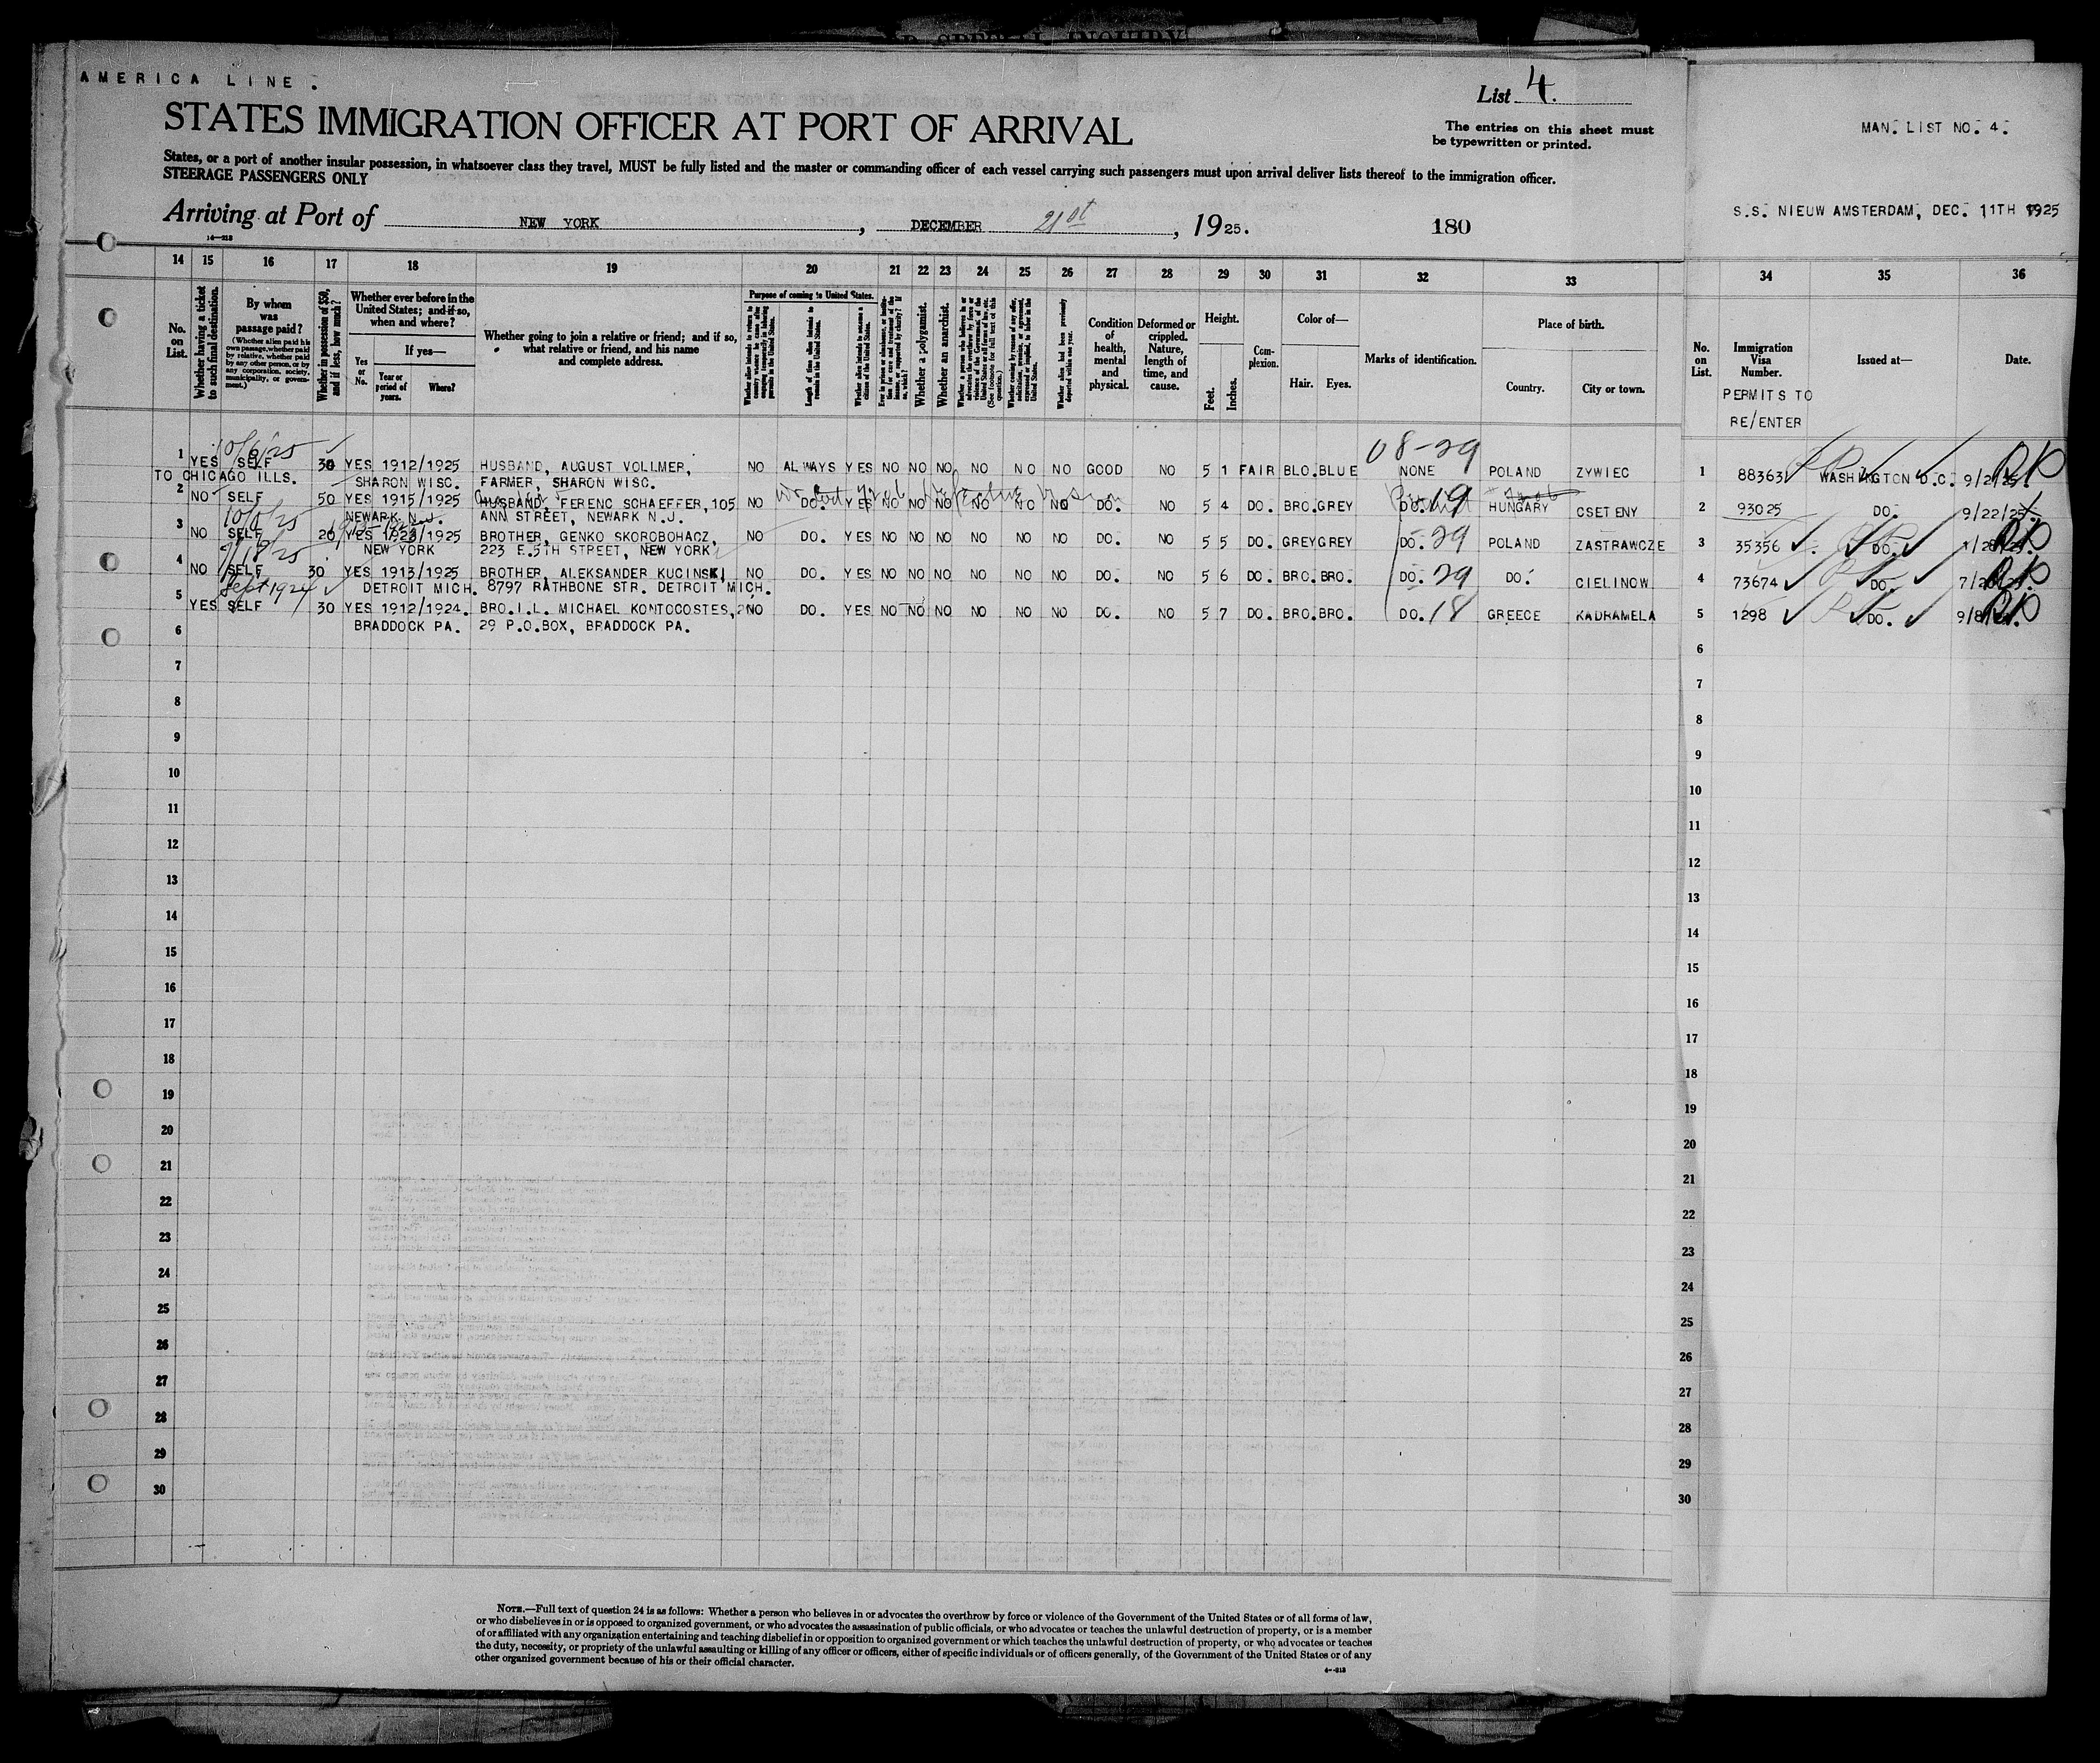 AMERICA LINE.
List 4.
STATES IMMIGRATION OFFICER AT PORT OF ARRIVAL
The entries on this sheet must be typewritten or printed.
MAN. LIST NO. 4.
States, or a port of another insular possession, in whatsoever class they travel, MUST be fully listed and the master or commanding officer of each vessel carrying such passengers must upon arrival deliver lists thereof to the immigration officer.
STEERAGE PASSENGERS ONLY
Arriving at Port of NEW YORK, DECEMBER 21st, 1925. 180
S.S. NIEUW AMSTERDAM, DEC. 11TH 1925
14 15 16 17 18 19 20 21 22 23 24 25 26 27 28 29 30 31 32 33 34 35 36
No. on List.
Whether having a ticket to such final destination.
By whom was passage paid?
(Whether alien paid his own passage, whether paid by relative, whether paid by any other person, or by any corporation, society, municipality, or government.)
Whether in possession of $50, and if less, how much?
Whether ever before in the United States; and if so, when and where?
Yes or No.
If yes—
Year or period of years.
Where?
Whether going to join a relative or friend; and if so, what relative or friend, and his name and complete address.
Purpose of coming to United States.
Length of time alien intends to remain in the United States.
Whether alien intends to become a citizen of the United States.
Whether a polygamist.
Whether an anarchist.
Condition of health, mental and physical.
Deformed or crippled. Nature, length of time, and cause.
Height.
Feet.
Inches.
Complexion.
Color of—
Hair. Eyes.
Marks of identification.
Place of birth.
Country.
City or town.
No. on List.
Immigration Visa Number.
PERMITS TO RE/ENTER
Issued at—
Date.
10/6/25
08-29
1 YES SELF 30 YES 1912/1925 HUSBAND, AUGUST VOLLMER, NO ALWAYS YES NO NO NO NO NO NO GOOD NO 5 1 FAIR BLO. BLUE NONE POLAND ZYWIEC 1 88363 WASHINGTON D.C.
TO CHICAGO ILLS. SHARON WISC. FARMER, SHARON WISC.
2 NO SELF 50 YES 1915/1925 HUSBAND, FERENC SCHAEFFER, 105 NO DO. YES NO NO NO NO NO NO DO. NO 5 4 DO. BRO. GREY DO. 19 HUNGARY CSETENY 2 93025 DO. 9/22/25
NEWARK N.J. ANN STREET, NEWARK N.J.
3 NO SELF 20 YES 1923/1925 BROTHER, GENKO SKOROBOHACZ, NO DO. YES NO NO NO NO NO NO DO. NO 5 5 DO. GREY GREY DO. 29 POLAND ZASTRAWCZE 3 35356 DO.
NEW YORK 223 E.5TH STREET, NEW YORK
4 NO SELF 30 YES 1913/1925 BROTHER, ALEKSANDER KUCINSKI NO DO. YES NO NO NO NO NO NO DO. NO 5 6 DO. BRO. BRO. DO. 29 DO. CIELINOW 4 73674 DO.
DETROIT MICH. 8797 RATHBONE STR. DETROIT MICH.
Sept 1924
5 YES SELF 30 YES 1912/1924. BRO.I.L. MICHAEL KONTOCOSTES, NO DO. YES NO NO NO NO NO NO DO. NO 5 7 DO. BRO. BRO. DO. 18 GREECE KADRAMELA 5 1298 DO.
BRADDOCK PA. 29 P.O.BOX, BRADDOCK PA.
6 6
7 7
8 8
9 9
10 10
11 11
12 12
13 13
14 14
15 15
16 16
17 17
18 18
19 19
20 20
21 21
22 22
23 23
24 24
25 25
26 26
27 27
28 28
29 29
30 30
NOTE.—Full text of question 24 is as follows: Whether a person who believes in or advocates the overthrow by force or violence of the Government of the United States or of all forms of law,
or who disbelieves in or is opposed to organized government, or who advocates the assassination of public officials, or who advocates or teaches the unlawful destruction of property, or is a member
of or affiliated with any organization entertaining and teaching disbelief in or opposition to organized government or which teaches the unlawful destruction of property, or who advocates or teaches
the duty, necessity, or propriety of the unlawful assaulting or killing of any officer or officers, either of specific individuals or of officers generally, of the Government of the United States or of any
other organized government because of his or their official character.